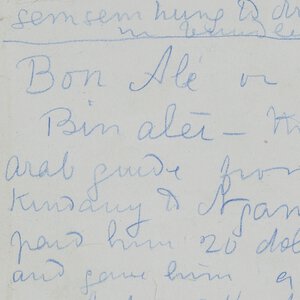 semsem hung to
Bon Alé or
Bin alēi —
arab guide from
Kindany to Ngam
paid him 20 dol
and gave him a